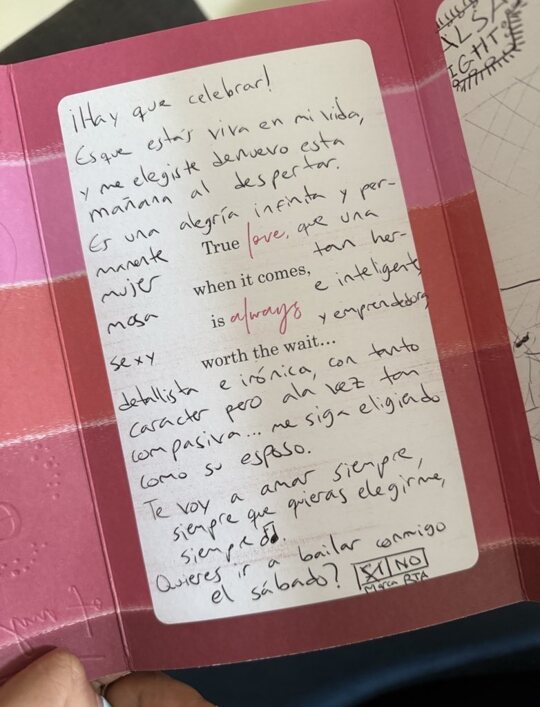 ¡Hay que celebrar!
Es que estás viva en mi vida,
y me elegiste denuevo esta
mañana al despertar.
Es una alegría infinita y per-
manente True love, que una
mujer when it comes, tan her-
mosa is always e inteligente
sexy worth the wait... y emprendedora,
detallista e irónica, con tanto
caracter pero ala vez tan
compasiva... me siga eligiendo
como su esposo.
Te voy a amar siempre,
siempre que quieras elegirme,
siempre
Quieres ir a bailar conmigo
el sábado? SI NO
Marca RTA